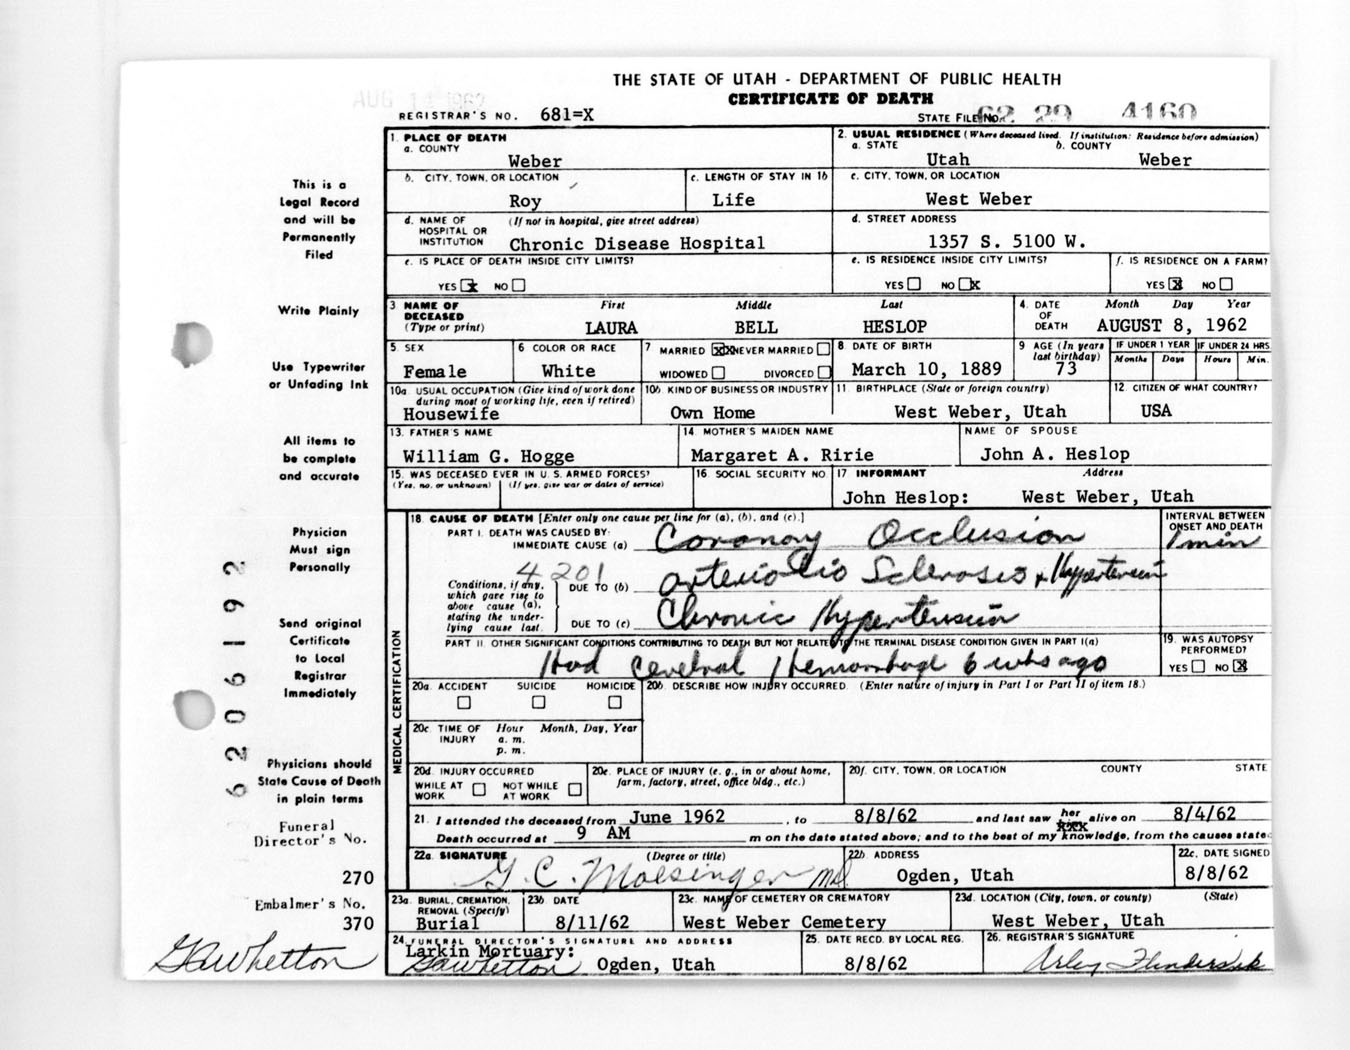 THE STATE OF UTAH - DEPARTMENT OF PUBLIC HEALTH
CERTIFICATE OF DEATH
AUG 14 1962
REGISTRAR'S NO. 681=X
STATE FILE NO. 62 29 4160
1. PLACE OF DEATH
a. COUNTY
Weber
2. USUAL RESIDENCE (Where deceased lived. If institution: Residence before admission)
a. STATE b. COUNTY
Utah Weber
b. CITY, TOWN, OR LOCATION
Roy
c. LENGTH OF STAY IN 1b
Life
c. CITY, TOWN, OR LOCATION
West Weber
d. NAME OF (If not in hospital, give street address)
HOSPITAL OR
INSTITUTION Chronic Disease Hospital
d. STREET ADDRESS
1357 S. 5100 W.
e. IS PLACE OF DEATH INSIDE CITY LIMITS?
YES x NO
e. IS RESIDENCE INSIDE CITY LIMITS?
YES NO x
f. IS RESIDENCE ON A FARM?
YES X NO
3. NAME OF DECEASED
(Type or print)
First Middle Last
LAURA BELL HESLOP
4. DATE OF DEATH
Month Day Year
AUGUST 8, 1962
5. SEX
Female
6. COLOR OR RACE
White
7. MARRIED XX NEVER MARRIED
WIDOWED DIVORCED
8. DATE OF BIRTH
March 10, 1889
9. AGE (In years last birthday)
73
IF UNDER 1 YEAR IF UNDER 24 HRS.
Months Days Hours Min.
10a. USUAL OCCUPATION (Give kind of work done
during most of working life, even if retired)
Housewife
10b. KIND OF BUSINESS OR INDUSTRY
Own Home
11. BIRTHPLACE (State or foreign country)
West Weber, Utah
12. CITIZEN OF WHAT COUNTRY?
USA
13. FATHER'S NAME
William G. Hogge
14. MOTHER'S MAIDEN NAME
Margaret A. Ririe
NAME OF SPOUSE
John A. Heslop
15. WAS DECEASED EVER IN U.S. ARMED FORCES?
(Yes, no, or unknown) (If yes, give war or dates of service)
16. SOCIAL SECURITY NO.
17. INFORMANT Address
John Heslop: West Weber, Utah
MEDICAL CERTIFICATION
18. CAUSE OF DEATH [Enter only one cause per line for (a), (b), and (c).]
PART I. DEATH WAS CAUSED BY:
IMMEDIATE CAUSE (a) Coronay Occlusion
INTERVAL BETWEEN
ONSET AND DEATH
1 min
4201
Conditions, if any,
which gave rise to
above cause (a),
stating the under-
lying cause last.
DUE TO (b) Sclerosis + Hypertension
DUE TO (c) Chronic Hypertension
PART II. OTHER SIGNIFICANT CONDITIONS CONTRIBUTING TO DEATH BUT NOT RELATED TO THE TERMINAL DISEASE CONDITION GIVEN IN PART I(a)
Had Cerebral Hemorrhage 6 wks ago
19. WAS AUTOPSY
PERFORMED?
YES NO X
20a. ACCIDENT SUICIDE HOMICIDE
20b. DESCRIBE HOW INJURY OCCURRED. (Enter nature of injury in Part I or Part II of item 18.)
20c. TIME OF INJURY
Hour Month, Day, Year
a. m.
p. m.
20d. INJURY OCCURRED
WHILE AT WORK NOT WHILE AT WORK
20e. PLACE OF INJURY (e. g., in or about home,
farm, factory, street, office bldg., etc.)
20f. CITY, TOWN, OR LOCATION COUNTY STATE
21. I attended the deceased from June 1962, to 8/8/62 and last saw her alive on 8/4/62
Death occurred at 9 AM m on the date stated above; and to the best of my knowledge, from the causes state
22a. SIGNATURE (Degree or title)
G. C. Moesinger MD
22b. ADDRESS
Ogden, Utah
22c. DATE SIGNED
8/8/62
23a. BURIAL, CREMATION,
REMOVAL (Specify)
Burial
23b. DATE
8/11/62
23c. NAME OF CEMETERY OR CREMATORY
West Weber Cemetery
23d. LOCATION (City, town, or county) (State)
West Weber, Utah
24. FUNERAL DIRECTOR'S SIGNATURE AND ADDRESS
Larkin Mortuary:
GAWhetton Ogden, Utah
25. DATE RECD. BY LOCAL REG.
8/8/62
26. REGISTRAR'S SIGNATURE
This is a
Legal Record
and will be
Permanently
Filed
Write Plainly
Use Typewriter
or Unfading Ink
All items to
be complete
and accurate
Physician
Must sign
Personally
Send original
Certificate
to Local
Registrar
Immediately
Physicians should
State Cause of Death
in plain terms
Funeral
Director's No.
270
Embalmer's No.
370
GAWhetton
6206192